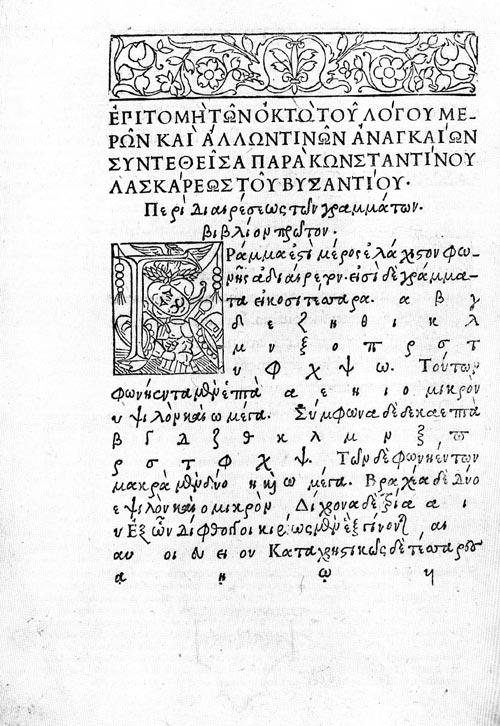 ΕΠΙΤΟΜῊ ΤΩ͂Ν ὈΚΤῺ ΤΟΥ͂ ΛΌΓΟΥ ΜΕ-
ΡΩ͂Ν ΚΑῚ ἌΛΛΩΝ ΤΙΝΩ͂Ν ἈΝΑΓΚΑΊΩΝ
ΣΥΝΤΕΘΕΙ͂ΣΑ ΠΑΡᾺ ΚΩΝΣΤΑΝΤΊΝΟΥ
ΛΑΣΚΆΡΕΩΣ ΤΟΥ͂ ΒΥΖΑΝΤΊΟΥ.
Περὶ Διαιρέσεως τῶν γραμμάτων.
βιβλίον πρῶτον.
ΓΡάμμα ἐστὶ μέρος ἐλάχιστον φω-
νῆς ἀδιαίρετον. εἰσὶ δὲ γράμμα-
τα εἰκοσιτέσσαρα. α β γ
δ ε ζ η θ ι κ λ
μ ν ξ ο π ρ σ τ
υ φ χ ψ ω. Τούτων
φωνήεντα μὲν ἑπτὰ α ε η ι ο μικρὸν
υ ψιλὸν καὶ ω μέγα. Σύμφωνα δὲ δεκαεπτὰ
β γ δ ζ θ κ λ μ ν ξ π
ρ σ τ φ χ ψ. Τῶν δὲ φωνηέντων
μακρὰ μὲν δύο η καὶ ω μέγα. Βραχέα δὲ δύο
ε ψιλὸν καὶ ο μικρὸν Δίχρονα δὲ τρία α ι
υ Ἐξ ὧν Δίφθογγοι κυρίως μὲν ἓξ γίνονται αι
αυ οι ει ευ ου Καταχρηστικῶς δὲ τέσσαρες
ᾳ ῃ ῳ υι